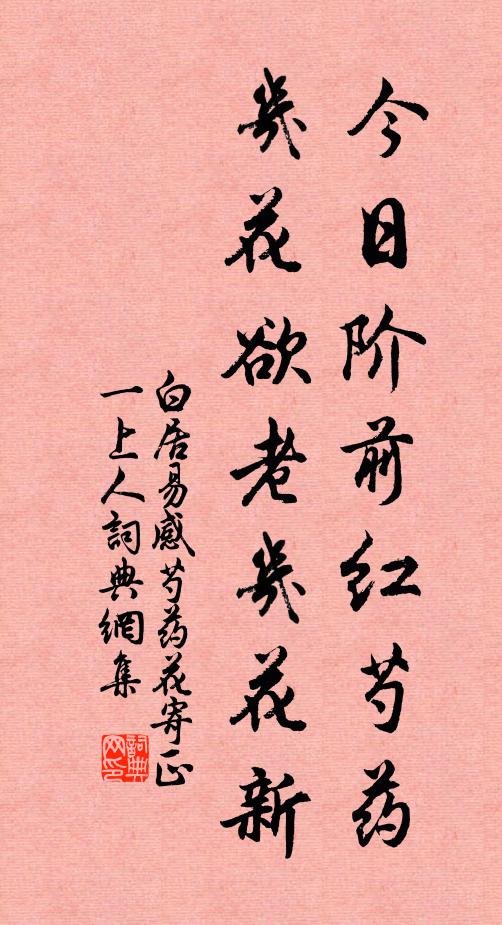 今日阶前红芍药
几花欲老几花新
白居易感芍药花寄正
一上人詞典網集
詞典
网印